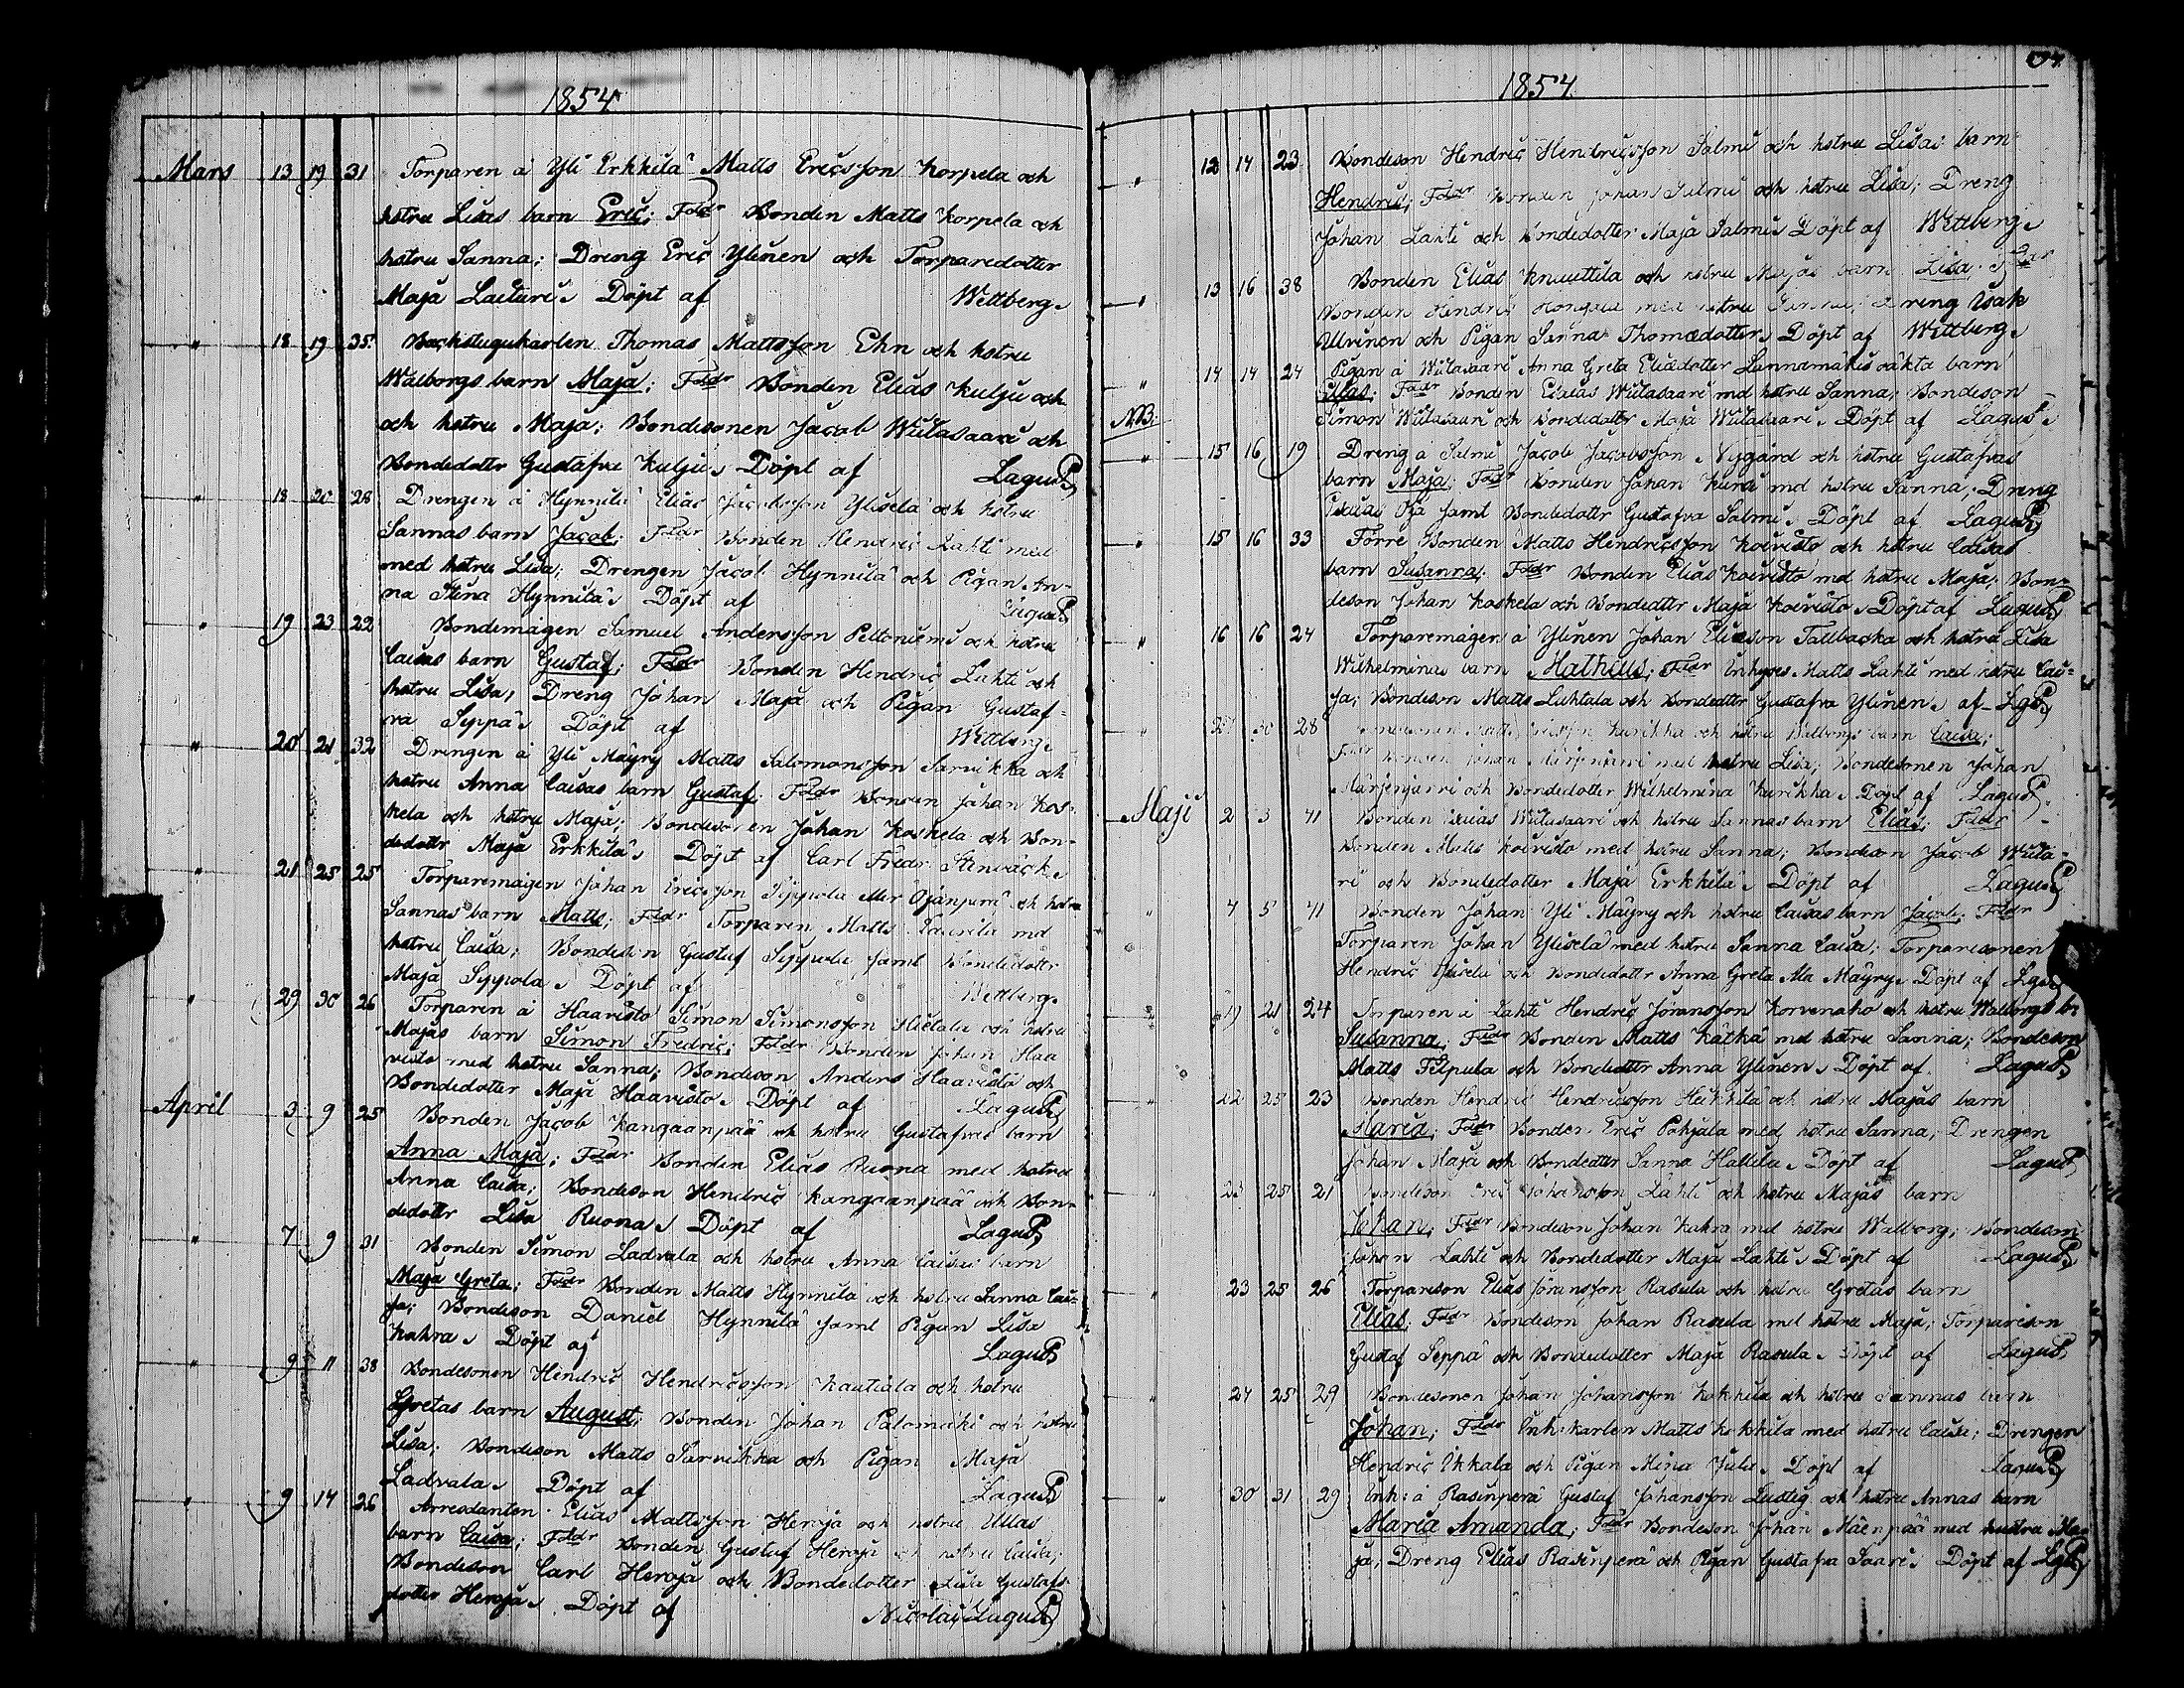 1854
Mars 13 19 31 Torparen å Yli Erkkilä Matts Ericsson Korpela och
hstru Lisas barn Eric; Fddr Bonden Matts Korpela och
hstru Sanna; Dreng Eric Ylinen och Torparedotter
Maja Döpt af Wettberg
" 18 19 35 Backstugukarlen Thomas Mattsson Ehn och hstru
Walborgs barn Maja; Fddr Bonden Elias Kulju och
och hstru Maja; Bondesonen Jacob Wiitasaari och
Bondedottr Gustafva Kulju. Döpt af Lagus
" 18 20 28 Drengen å Hynnilä Elias Jacobsson Ylisela och hstru
Sannas barn Jacob; Fddr Bonden Hendric Lahti med
med hstru Lisa; Drengen Jacob Hynnilä och Pigan An-
na Stina Hynnilä. Döpt af Lagus
" 19 23 22 Bondemågen Samuel Andersson Peltoniemi och hstru
Caisas barn Gustaf; Fddr Bonden Hendric Lahti och
hstru Lisa; Dreng Johan Maja och Pigan Gustaf-
va Seppä. Döpt af Wettberg
" 20 21 32 Drengen å Yli Mäyry Matts Salomonsson Sarvikka och
hstru Anna Caisas barn Gustaf; Fddr Bonden Johan Kos-
kela och hstru Maja; Bondesonen Johan Koskela och Bon-
dedottr Maja Erkkilä. Döpt af Carl Fredr. Stenbäck
" 21 25 25 Torparemågen Johan Ericsson Seppola eller Ojanperä och hstru
Sannas barn Matts; Fddr Torparen Matts Laurila md
hstru Caisa; Bondeson Gustaf Seppola samt Bondedottr
Maja Seppola. Döpt af Wettberg
" 29 30 26 Torparen å Haavisto Simon Simonsson Hietala och hstru
Majas barn Simon Fredric; Fddr Bonden Johan Haa
visto med hstru Sanna; Bondeson Anders Haavisto och
Bondedotter Maja Haavisto. Döpt af Lagus
April 3 9 25 Bonden Jacob Kangaanpää och hstru Gustafvas barn
Anna Maja; Fddr Bonden Elias Ruona med hstru
Anna Caisa; Bondeson Hendric Kangaanpää och Bon-
dedottr Lisa Ruona. Döpt af Lagus
" 7 9 31 Bonden Simon Ladvala och hstru Anna Caisas barn
Maja Greta; Fddr Bonden Matts Hynnilä och hstru Sanna Cai-
sa; Bondeson Daniel Hynnilä samt Pigan Lisa
Kahra. Döpt af Lagus
" 9 11 38 Bondesonen Hendric Hendricsson Kautiala och hstru
Gretas barn August; Bonden Johan Palomäki och hstru
Lisa; Bondeson Matts Sarvikka och Pigan Maja
Ladvala. Döpt af Lagus
" 9 14 26 Arrendanten Elias Mattsson Heroja och hstru Ullas
barn Caisa; Fddr Bonden Gustaf Heroja och hstru Caisa;
Bondeson Carl Heroja och Bondedotter Lisa Gustafs
dotter Heroja. Döpt af Nicolaj Lagus
1854
" 12 14 23 Bondeson Hendric Hendricsson Salmi och hstru Lisas barn
Hendric; Fddr Bonden Johan Salmi och hstru Lisa; Dreng
Johan Lahti och Bondedotter Maja Salmi. Döpt af Wettberg
" 13 16 38 Bonden Elias Knuuttila och hstru Majas barn Lisa; Fddr
Bonden Hendric med hstru Sanna; Dreng Isak
Ulvinen och Pigan Sanna Thomædotter. Döpt af Wettberg
" 14 14 24 Pigan å Wiitasaari Anna Greta Eliædotter Lannamäkis oäkta barn
NB. Elias; Fddr Bonden Esaias Wiitasaari md hstru Sanna; Bondeson
Simon Wiitasaari och Bondedottr Maja Wiitasaari. Döpt af Lagus
" 15 16 19 Dreng å Salmi Jacob Jacobsson Nygård och hstru Gustafvas
barn Maja; Fddr Bonden Johan Kura md hstru Sanna; Dreng
Esaias Oja samt Bondedottr Gustafva Salmi. Döpt af Lagus
" 15 16 33 Förre Bonden Matts Hendricsson Koivisto och hstru Caisas
barn Susanna; Fddr Bonden Elias Koivisto md hstru Maja; Bon-
deson Johan Koskela och Bondedttr Maja Koivisto. Döpt af Lagus
" 16 16 24 Torparemågen å Ylinen Johan Eliæson Tallbacka och hstru Lisa
Wilhelminas barn Mathias; Fddr Inhyses Matts Lahti med hstru Cai-
sa; Bondeson Matts Luhtala och Bondedttr Gustafva Ylinen. af Lgs
" 27 30 28 Matts Kurikka och hstru Walborgs barn Caisa;
Fddr Bonden Johan Marjenjärvi med hstru Lisa; Bondesonen Johan
Marjenjärvi och Bondedotter Wilhelmina Kurikka. Döpt af Lagus
Maji 2 3 41 Bonden Esaias Wiitasaari och hstru Sannas barn Elias; Fddr
Bonden Matts Koivisto med hstru Sanna; Bondeson Jacob Wiita-
ri och Bondedotter Maja Erkkilä. Döpt af Lagus
" 4 5 41 Bonden Johan Yli Mäyry och hstru Caisas barn Jacob; Fddr
Torparen Johan Ylisela med hstru Sanna Caisa; Torparesonen
Hendric Ylisela och Bondedottr Anna Greta Ala Mäyry. Döpt af Lgs
" 19 21 24 Torparen å Lahti Hendric Jöransson Korvenaho och hstru Walborgs b:
Susanna; Fddr Bonden Matts Kätkä md hstru Sanna; Bondeson
Matts Filpula och Bondedttr Anna Ylinen. Döpt af Lagus
" 22 25 23 Bonden Hendric Hendricsson Heikkilä och hstru Majas barn
Maria; Fddr Bonden Eric Pohjala med hstru Sanna; Drengen
Johan Maja och Bondedttr Sanna Hallila. Döpt af Lagus
" 23 25 21 Bondeson Eric Johansson Lahti och hstru Majas barn
Johan; Fddr Bondeson Johan Kahra md hstru Walborg; Bondeson
Johan Lahti och Bondedotter Maja Lahti. Döpt af Lagus
" 23 25 26 Torpareson Elias Jöransson Rasula och hstru Gretas barn
Elias; Fddr Bondeson Johan Rasula md hstru Maja; Torpareson
Gustaf Seppä och Bondedotter Maja Rasula. Döpt af Lagus
" 24 25 29 Bondesonen Johan Johansson Kokkila och hstru Sannas barn
Johan; Fddr Inh: karlen Matts Kokkila med hstru Caisa; Drengen
Hendric Ikkala och Pigan Mina Jula. Döpt af Lagus
" 30 31 29 Inh: å Rasinperä Gustaf Johansson Lustig och hstru Annas barn
Maria Amanda; Fddr Bondeson Johan Mäenpää med hustru Ma-
ja; Dreng Elias Rasinperä och Pigan Gustafva Saari. Döpt af Lgs